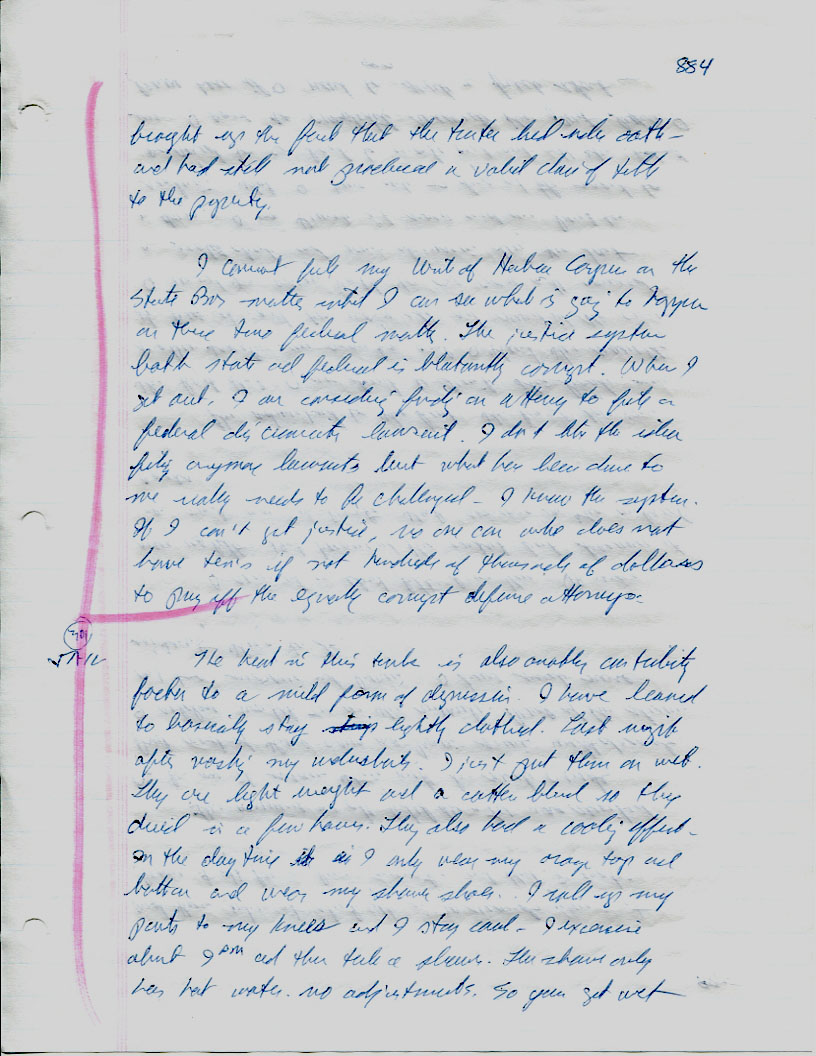 884
brought up the fact that the trustee had under oath
and had still not produced a valid claim of title
to the property.
I cannot file my Writ of Habeas Corpus on the
State Bar matter until I can see what is going to happen
on these two federal matters. The justice system
both state and federal is blatantly corrupt. When I
get out, I am considering finding an attorney to file a
federal lawsuit. I don't like the idea
filing anymore lawsuits but what has been done to
me really needs to be challenged - I know the system.
If I can't get justice, no one can who does not
have tens if not hundreds of thousands of dollars
to pay off the equally corrupt defense attorneys.
The heat in this tank is also another contributing
factor to a mild form of depression. I have learned
to basically stay lightly clothed. Last night
after washing my undershorts, I just put them on wet.
They are light weight and a cotton blend so they
dried in a few hours. They also had a cooling effect.
In the day time I only wear my orange top and
bottom and wear my shower shoes. I roll up my
pants to my knees and I stay cool - I exercise
about 9 pm and then take a shower. The shower only
has hot water. no adjustments. So you get wet